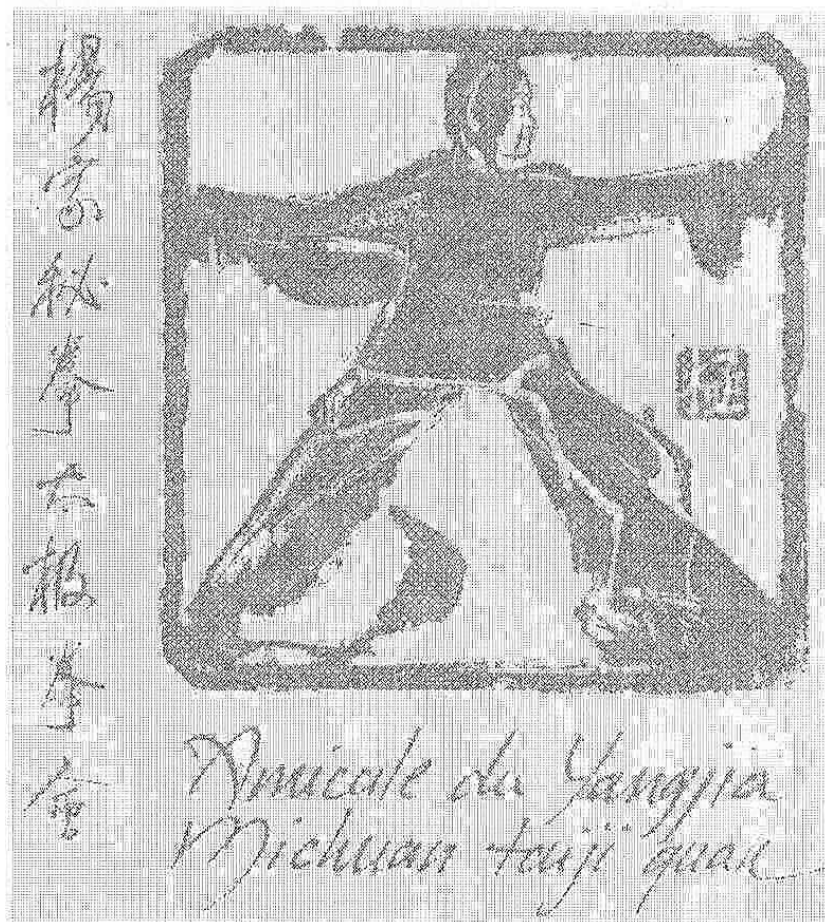 楊家秘拳太极拳會
Amicale du Yangjia
Michuan taiji quan